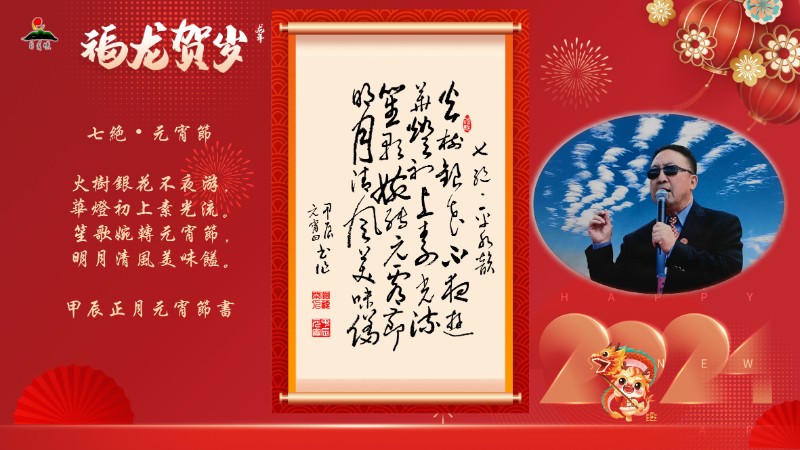 福龙贺岁
七絶•元宵節
火樹銀花不夜游
華燈初上素光流。
笙歌婉轉元宵節,
明月清風美味饈。
甲辰正月元宵節書
七絕·平水韻
火樹銀花不夜遊
華燈初上素光流
笙歌婉轉元宵節
明月清風美味饈
甲辰
HAPPY
2024
NEW